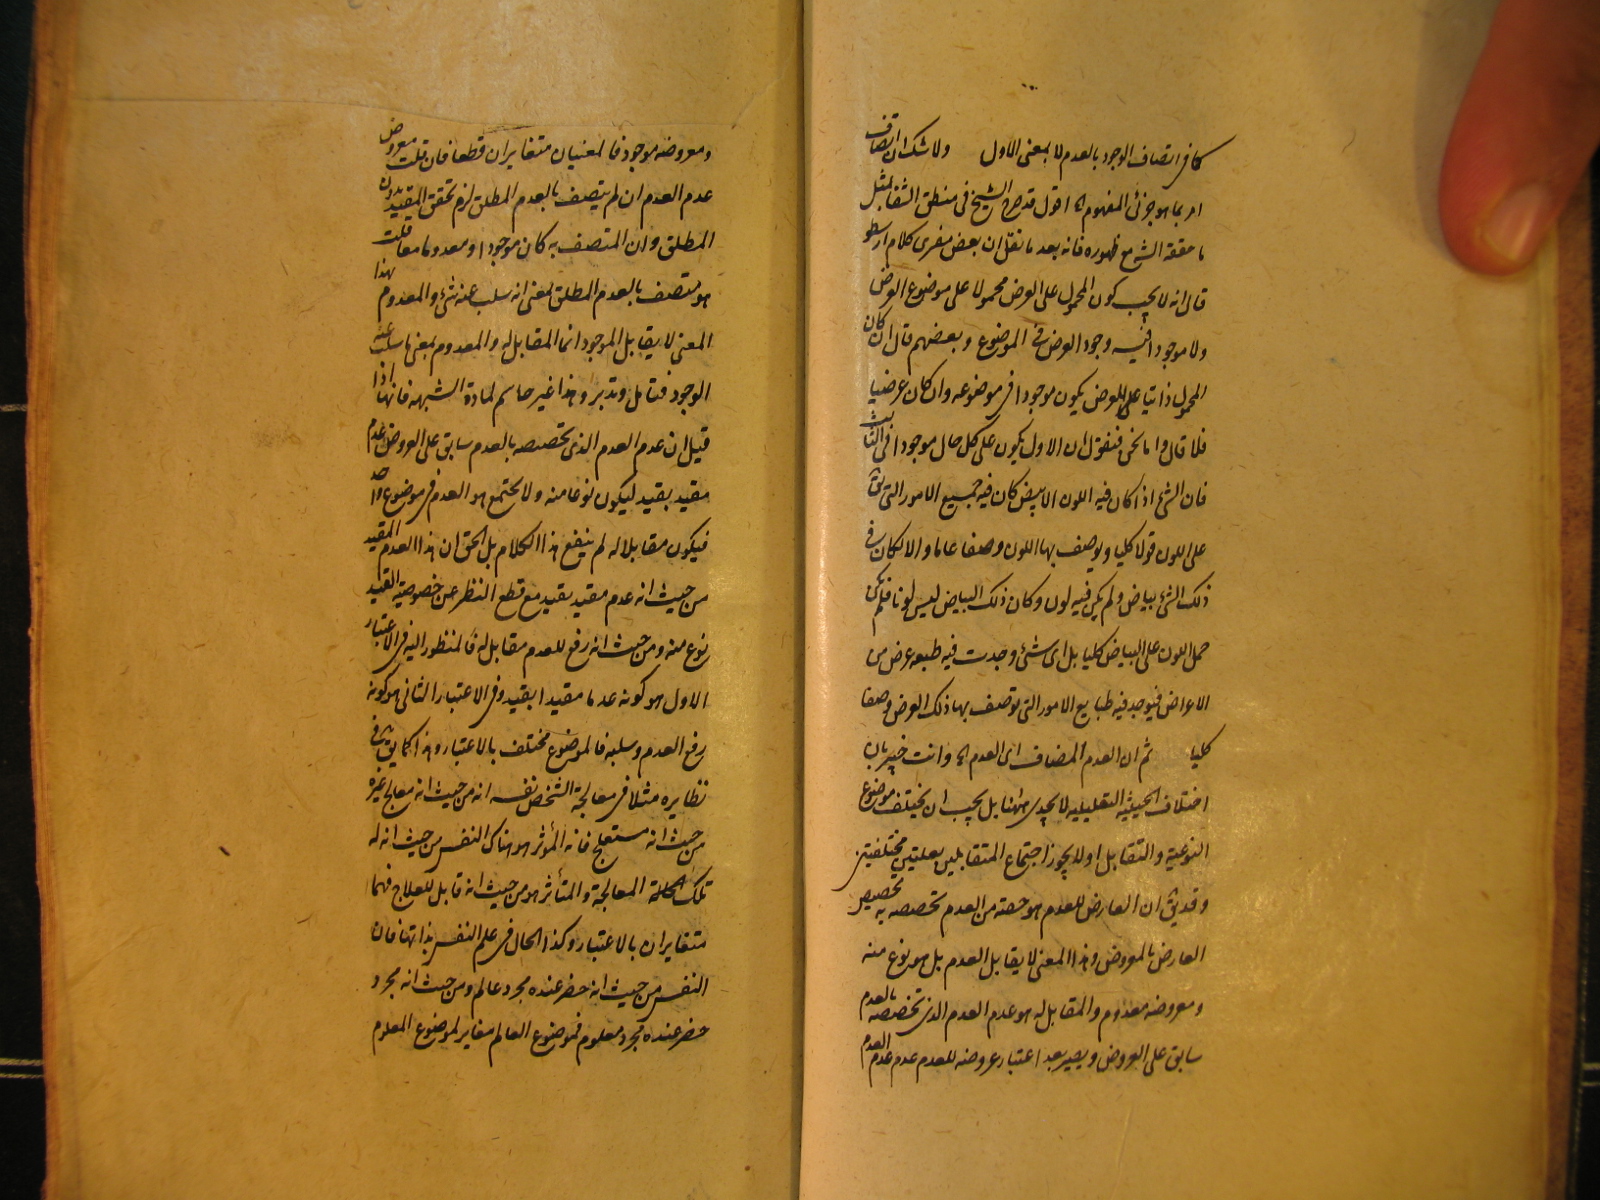 كما فى اتصاف الوجود بالعدم لا بمعنى الاول ولا شك ان اتصاف
امر بما هو جزئى المفهوم اه اقول قد صرح الشيخ فى منطق الشفا بمثل
ما حققه الش مع ظهوره فانه بعد ما نقل ان بعض مفسرى كلام ارسطو
قال انه لا يجب كون المحمول على العرض محمولا على موضوع العرض
ولا موجودا فيه وجود العرض فى الموضوع وبعضهم قال ان كان
المحمول ذاتيا على العرض يكون موجودا فى موضوعه وان كان عرضيا
فلا قال واما نحن فنقول ان الاول يكون على كل حال موجودا فى الثالث
فان الشئ اذا كان فيه اللون الابيض كان فيه جميع الامور التى يق
على اللون قولا كليا ويوصف بها اللون وصفا عاما والا لكان فى
ذلك الشئ بياض ولم يكن فيه لون وكان ذلك البياض ليس لونا فلم يكن
حمل اللون على البياض كليا بل اى شئ وجدت فيه طبيعه عرض من
الاعراض فيوجد فيه طبايع الامور التى توصف بها ذلك العرض وصفا
كليا ثم ان العدم المضاف اى العدم اه وانت خبير بان
اختلاف الحيثيه التعليليه لا يجدى ههنا بل يجب ان يختلف موضوع
النوعية والتقابل اولا يجوز اجتماع المتقابلين بعلتين مختلفتين
وقد يق ان العارض للعدم هو حصته من العدم تخصصه به تخصيص
العارض بالمعروض وهذا المعنى لا يقابل العدم بل هو نوع منه
ومعروضه معدوم والمقابل له هو عدم العدم الذى تخصصه بالعدم
سابق على العروض ويصير بعد اعتبار عروضه للعدم عدم عدم العدم
ومعروضه موجود فالمعنيان متغايران قطعا فان قلت معروض
عدم العدم ان لم يتصف بالعدم المطلق لزم تحقق المقيد بدون
المطلق وان المتصف به كان موجودا ومعدوما معا قلت
هو متصف بالعدم المطلق بمعنى انه سلب عنه شئ والمعدوم بهذا
المعنى لا يقابل الموجود انما المقابل له والمعدوم بمعنى ما سلب عنه
الوجود فتامل وتدبر وهذا غير حاسم لمادة الشبهه فانها اذا
قيل ان عدم العدم الذى تخصصه بالعدم سابق على العروض عدم
مقيد بقيد ليكون نوعا منه ولا يجتمع هو العدم فى موضوع واحد
فيكون مقابلا له لم ينفع هذا الكلام بل الحق ان هذا العدم المقيد
من حيث انه عدم مقيد بقيد مع قطع النظر عن خصوصية القيد
نوع منه ومن حيث انه رفع للعدم مقابل له فالمنظور اليه فى الاعتبار
الاول هو كونه عدما مقيدا بقيد وفى الاعتبار الثانى هو كونه
رفع العدم وسلبه فالموضوع مختلف بالاعتبار وهذا كما يق فى
نظايره مثلا فى معالجة الشخص نفسه انه من حيث انه معالج غيره
من حيث انه مستعلج فانه المؤثر هو هناك النفس من حيث انه له
تلك الملكة المعالجة والمتأثر هو من حيث انه قابل للعلاج فهما
متغايران بالاعتبار وكذا الحال فى علم النفس بذاتها فان
النفس من حيث انه حضر عنده مجرد عالم ومن حيث انه مجرد
حضر عنده مجرد معلوم فموضوع العالم مغاير لموضوع المعلوم